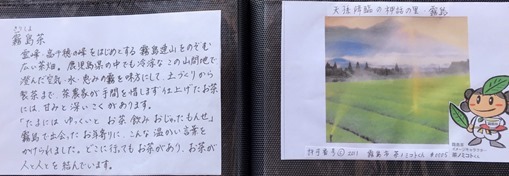 きりしま
霧島茶
霊峰・高千穂の峰をはじめとする霧島連山をのぞむ
広い茶畑。鹿児島県の中でも冷涼なこの山間地で
澄んだ空気・水・恵みの霧を味方にして、土づくりから
製茶まで、茶農家が手間を惜しまず仕上げたお茶
には、甘みと深いこくがあります。
「たまには ゆっくいと お茶飲み おじゃったもんせ」
霧島で出会ったお年寄りに、こんな温かい言葉を
かけられました。どこに行ってもお茶があり、お茶が
人と人とを結んでいます。
天孫降臨の神話の里・霧島
許可番号 201 霧島市
霧島茶
イメージキャラクター